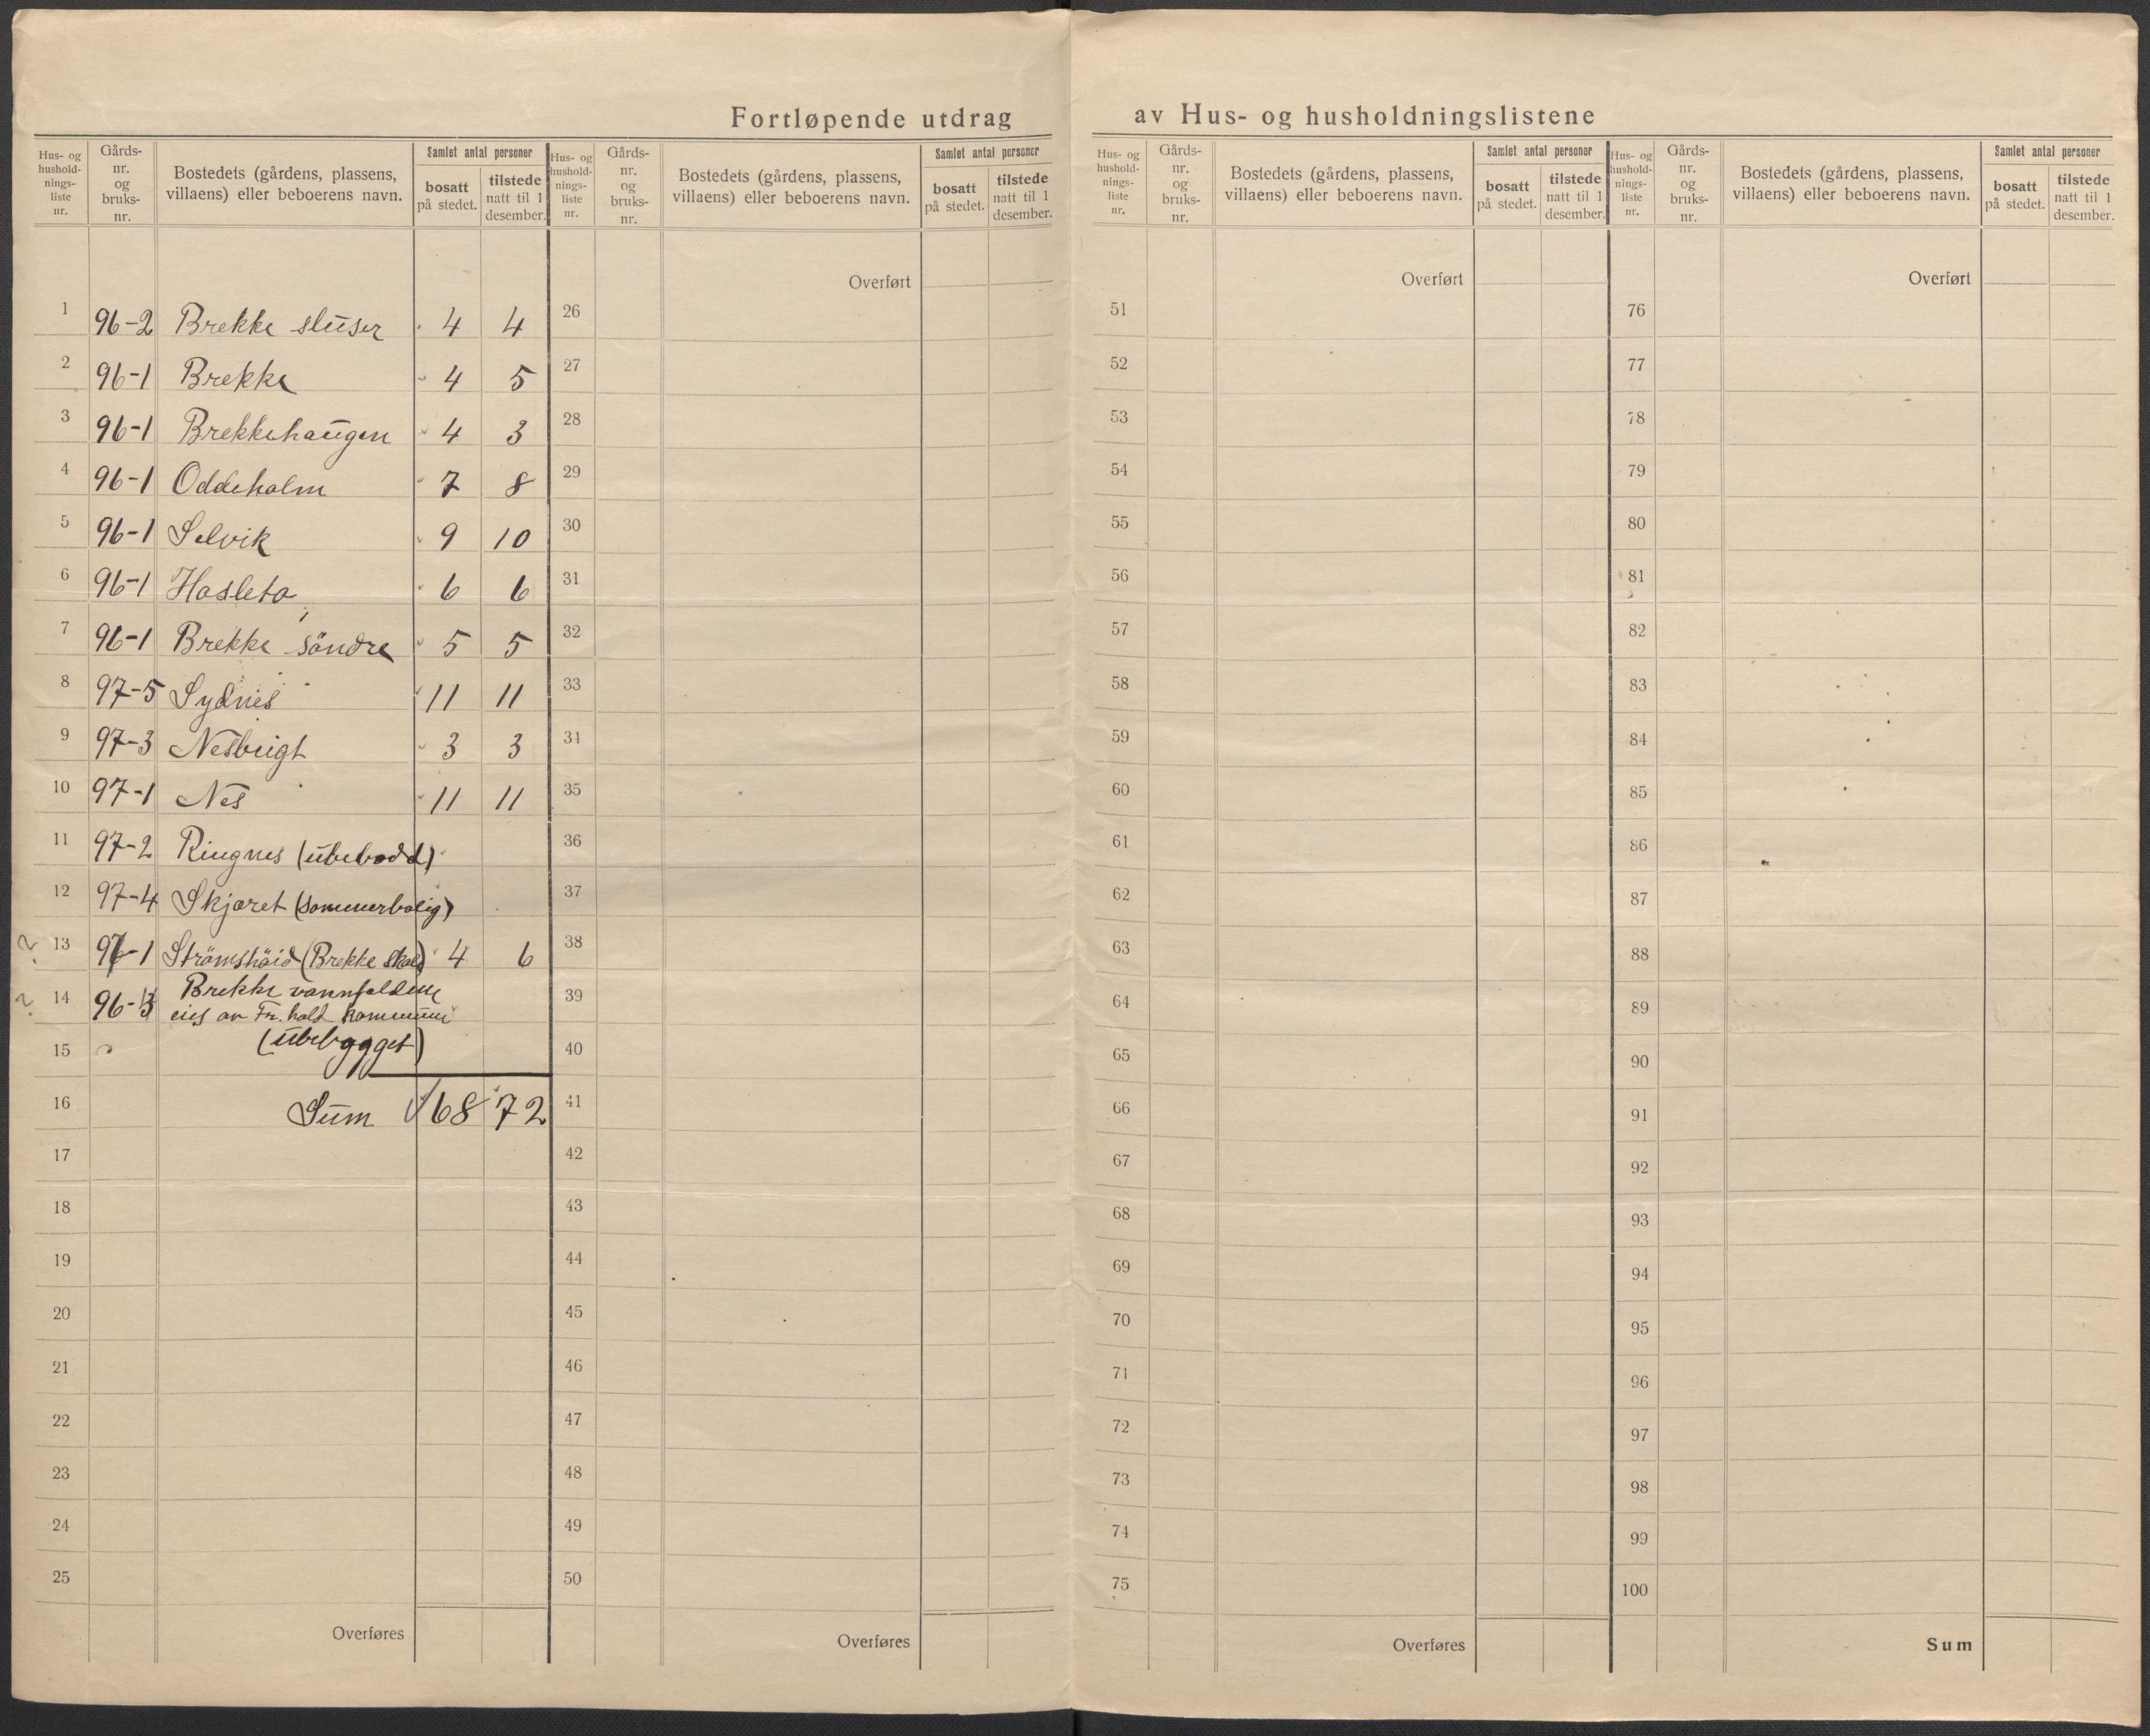 Fortløpende utdrag av Hus- og husholdningslistene
Hus- og hushold-nings-liste nr. Gårds-nr. og bruks-nr. Bostedets (gårdens, plassens, villaens) eller beboerens navn. Samlet antal personer bosatt på stedet. tilstede natt til 1 desember.
1 96-2 Brekke sluser 4 4
2 96-1 Brekke 4 5
3 96-1 Brekkehaugen 4 3
4 96-1 Oddeholm 7 8
5 96-1 Selvik 9 10
6 96-1 Hasleto 6 6
7 96-1 Brekke söndre 5 5
8 97-5 Sydnes 11 11
9 97-3 Nesbugt 3 3
10 97-1 Nes 11 11
11 97-2 Ringnes (ubebodd)
12 97-4 Skjæret (sommerbolig)
? 13 96-1 Strömshöid (Brekke skole) 4 6
? 14 96-3 Brekke vannfaldene
eies av Fr.hald kommune
15 (ubebygget)
16 Sum 68 72
17
18
19
20
21
22
23
24
25
Overføres
Hus- og hushold-nings-liste nr. Gårds-nr. og bruks-nr. Bostedets (gårdens, plassens, villaens) eller beboerens navn. Samlet antal personer bosatt på stedet. tilstede natt til 1 desember.
Overført
26
27
28
29
30
31
32
33
34
35
36
37
38
39
40
41
42
43
44
45
46
47
48
49
50
Overføres
Hus- og hushold-nings-liste nr. Gårds-nr. og bruks-nr. Bostedets (gårdens, plassens, villaens) eller beboerens navn. Samlet antal personer bosatt på stedet. tilstede natt til 1 desember.
Overført
51
52
53
54
55
56
57
58
59
60
61
62
63
64
65
66
67
68
69
70
71
72
73
74
75
Overføres
Hus- og hushold-nings-liste nr. Gårds-nr. og bruks-nr. Bostedets (gårdens, plassens, villaens) eller beboerens navn. Samlet antal personer bosatt på stedet. tilstede natt til 1 desember.
Overført
76
77
78
79
80
81
82
83
84
85
86
87
88
89
90
91
92
93
94
95
96
97
98
99
100
Sum